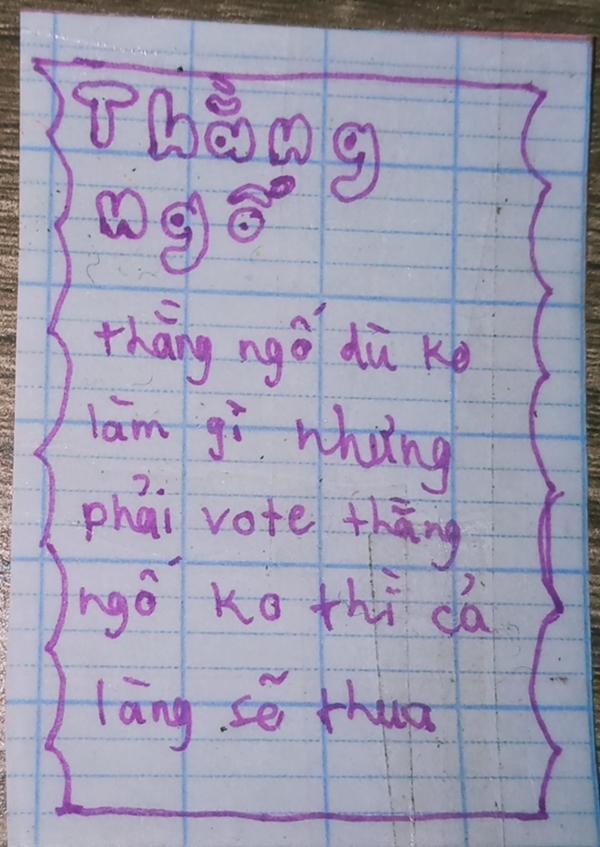 Thằng
ngố
thằng ngố dù ko
làm gì nhưng
phải vote thằng
ngố ko thì cả
làng sẽ thua